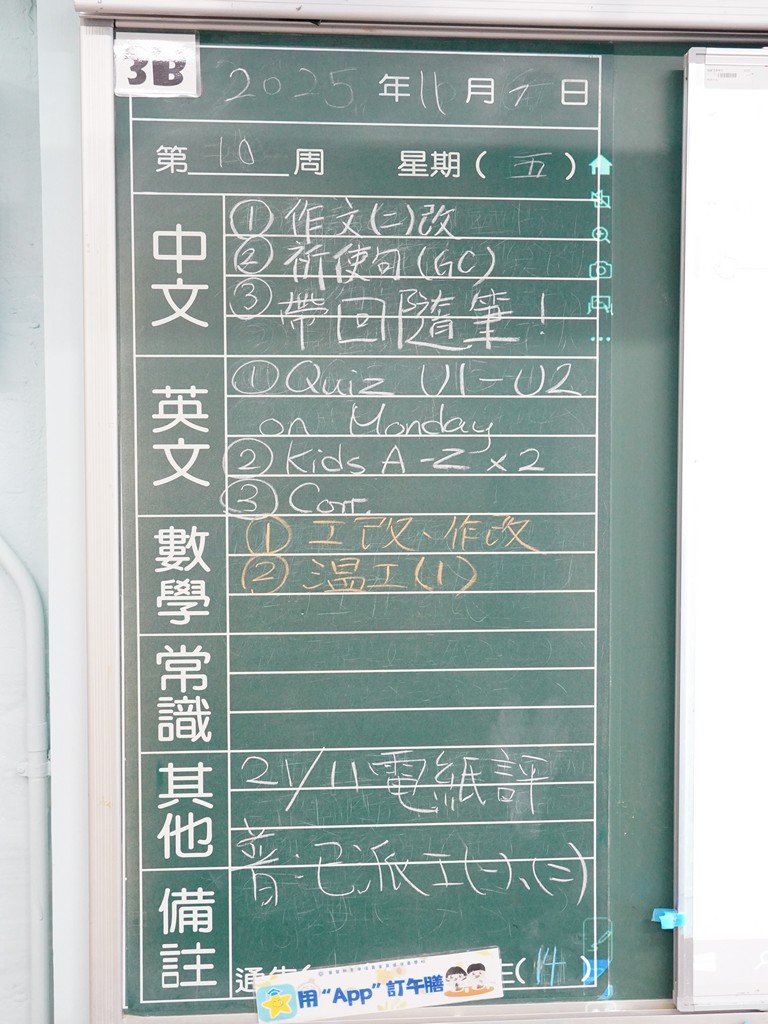 3B
2025年11月 日
第10周 星期(五)
中文
①作文(二)改
②祈使句(GC)
③帶回隨筆!
英文
①Quiz U1-U2
on Monday
②Kids A-Z x2
③Corr.
數學
①工改、作改
②溫工(1)
常識
其他
21/11電紙評
普:已派工(一)、(二)
備註
通告( (14)
用“App”訂午膳